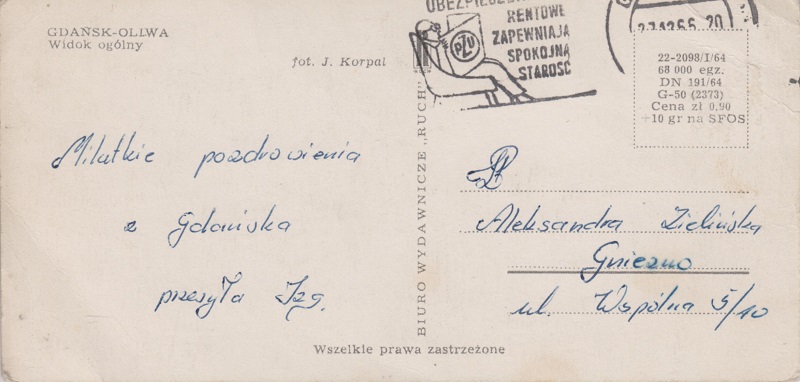 GDAŃSK-OLIWA
Widok ogólny
fot. J. Korpal
RENTOWE
ZAPEWNIAJĄ
SPOKOJNĄ
STAROŚĆ
PZU
22-2098/I/64
68 000 egz.
DN 191/64
G-50 (2373)
Cena zł 0,90
+10 gr na SFOS
BIURO WYDAWNICZE „RUCH"
Milutkie pozdrowienia
z Gdańska
przesyła Izg.
Aleksandra Zielińska
Gniezno
ul. Wspólna 5/10
Wszelkie prawa zastrzeżone